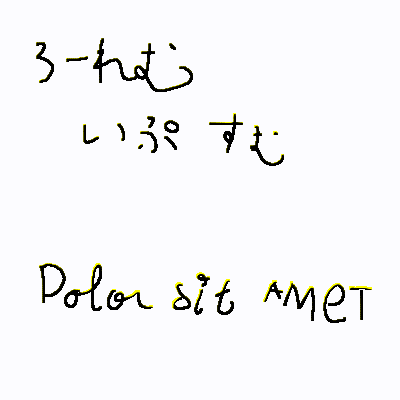 ろーれむ
いぷ すむ
Dolor sit AMeT